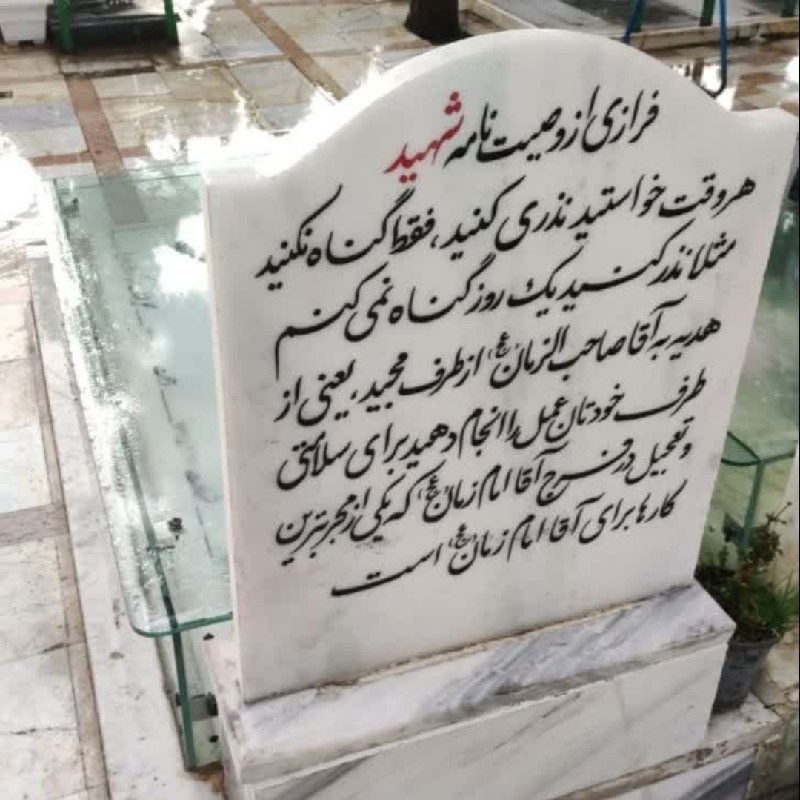 فرازی از وصیت نامه شهید
هر وقت خواستید نذری کنید، فقط گناه نکنید
مثلا نذر کنید یک روز گناه نمی کنم
هدیه به آقا صاحب الزمان (عج) از طرف مجید، یعنی از
طرف خودتان عمل را انجام دهید برای سلامتی
و تعجیل در فرج آقا امام زمان (عج) که یکی از مجرب‌ترین
کارها برای آقا امام زمان (عج) است